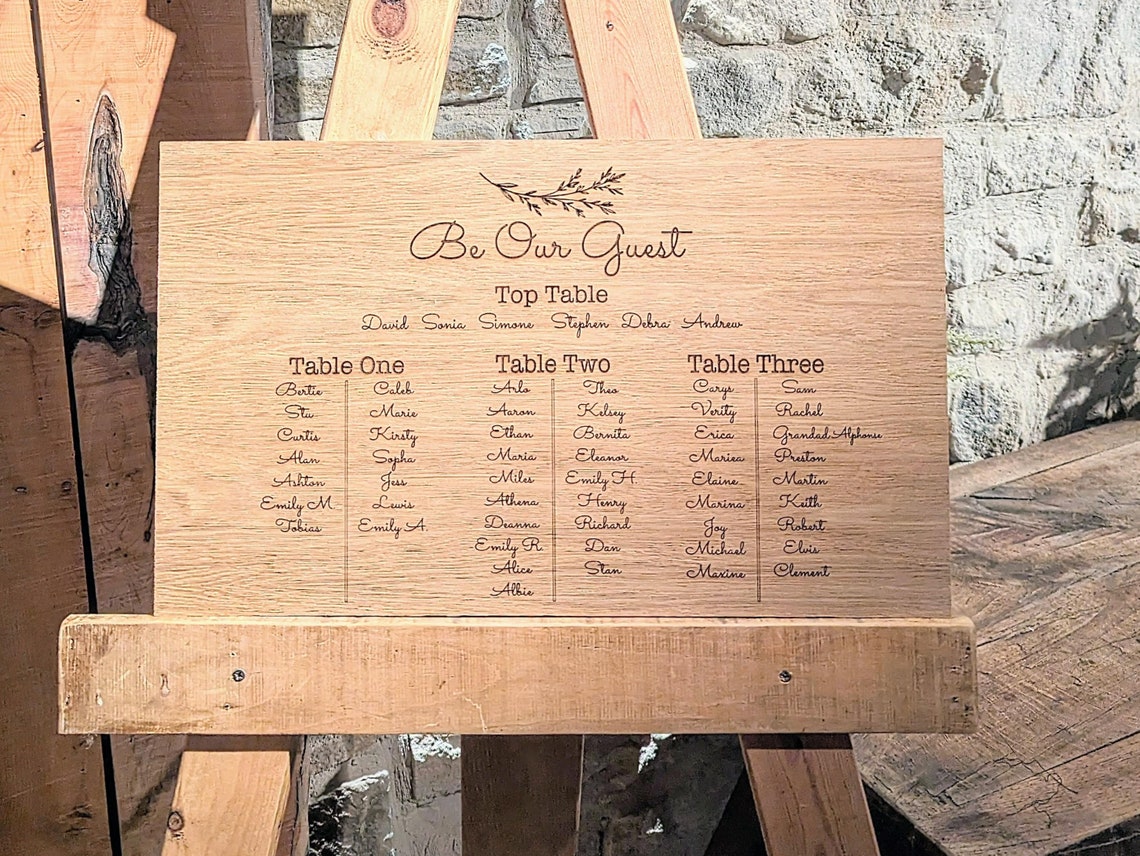 Be Our Guest
Top Table
David Sonia Simone Stephen Debra Andrew
Table One
Bertie Caleb
Stu Marie
Curtis Kirsty
Alan Sopha
Ashton Jess
Emily M. Lewis
Tobias Emily A.
Table Two
Arlo Theo
Aaron Kelsey
Ethan Bernita
Maria Eleanor
Miles Emily H.
Athena Henry
Deanna Richard
Emily R. Dan
Alice Stan
Albie
Table Three
Carys Sam
Verity Rachel
Erica Grandad Alphonse
Mariea Preston
Elaine Martin
Marina Keith
Joy Robert
Michael Elvis
Maxine Clement